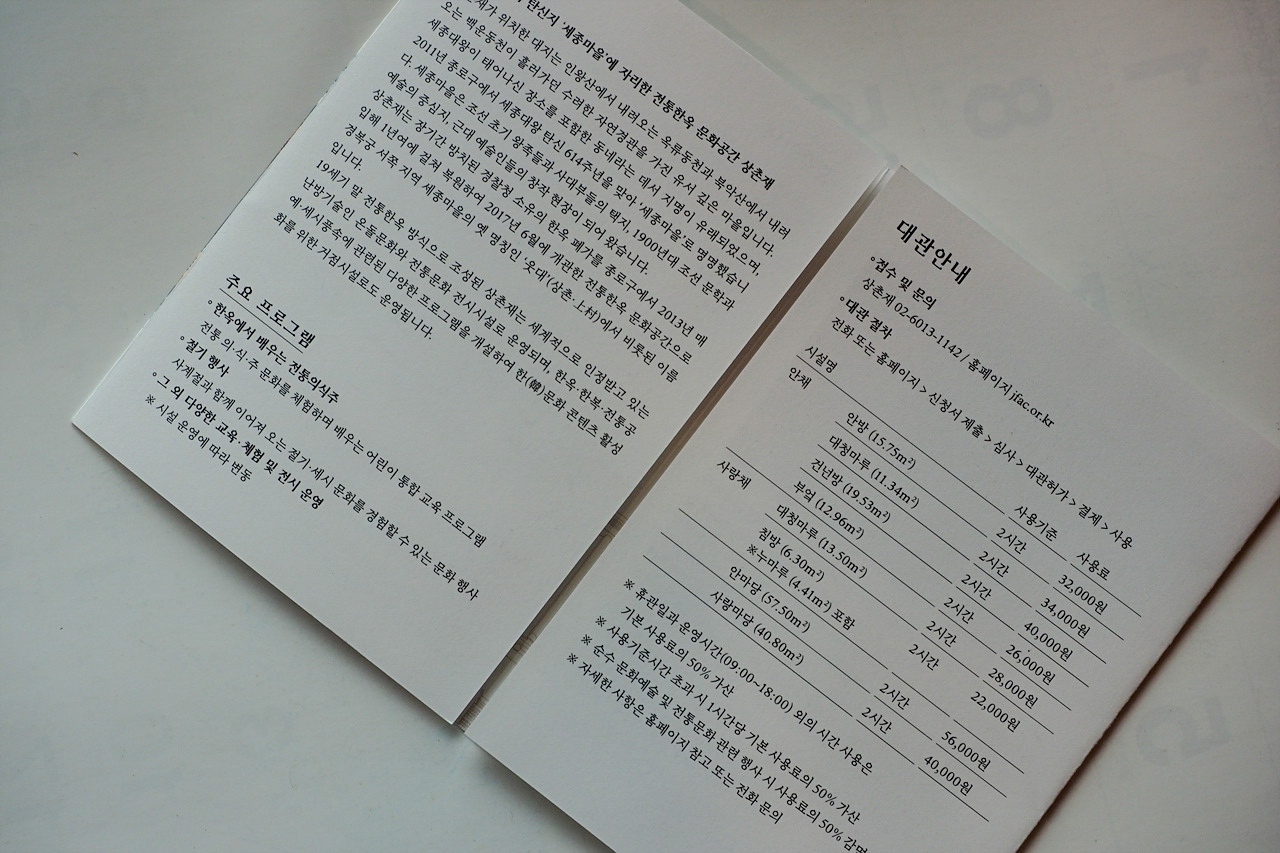 탄신지 '세종마을'에 자리한 전통한옥 문화공간 상촌재
위치한 대지는 인왕산에서 내려오는 옥류동천과 북악산에서 내려
오는 백운동천이 흘러가던 수려한 자연경관을 가진 유서 깊은 마을입니다.
세종대왕이 태어나신 장소를 포함한 동네라는 데서 지명이 유래되었으며,
2011년 종로구에서 세종대왕 탄신 614주년을 맞아 '세종마을'로 명명했습니
다. 세종마을은 조선 초기 왕족들과 사대부들의 택지, 1900년대 조선 문학과
예술의 중심지, 근대 예술인들의 창작 현장이 되어 왔습니다.
상촌재는 장기간 방치된 경찰청 소유의 한옥 폐가를 종로구에서 2013년 매
입해 1년여에 걸쳐 복원하여 2017년 6월에 개관한 전통한옥 문화공간으로
경복궁 서쪽 지역 세종마을의 옛 명칭인 '웃대'(상촌·上村)에서 비롯된 이름
입니다.
19세기 말 전통한옥 방식으로 조성된 상촌재는 세계적으로 인정받고 있는
난방기술인 온돌문화와 전통문화 전시시설로 운영되며, 한옥·한복·전통공
예·세시풍속에 관련된 다양한 프로그램을 개설하여 한(韓)문화 콘텐츠 활성
화를 위한 거점시설로도 운영됩니다.
주요 프로그램
◦ 한옥에서 배우는 전통의식주
전통 의·식·주 문화를 체험하며 배우는 어린이 통합 교육 프로그램
◦ 절기 행사
사계절과 함께 이어져 오는 절기·세시 문화를 경험할 수 있는 문화 행사
◦ 그 외 다양한 교육·체험 및 전시 운영
※ 시설 운영에 따라 변동
대관안내
◦접수 및 문의
상촌재 02-6013-1142 / 홈페이지 jfac.or.kr
◦대관 절차
전화 또는 홈페이지 > 신청서 제출 > 심사 > 대관허가 > 결제 > 사용
시설명 사용기준 사용료
안채 안방 (15.75m²) 2시간 32,000원
대청마루 (11.34m²) 2시간 34,000원
건넌방 (19.53m²) 2시간 40,000원
부엌 (12.96m²) 2시간 26,000원
사랑채 대청마루 (13.50m²) 2시간 28,000원
침방 (6.30m²) 2시간 22,000원
※누마루 (4.41m²) 포함
안마당 (57.50m²) 2시간 56,000원
사랑마당 (40.80m²) 2시간 40,000원
※ 휴관일과 운영시간(09:00~18:00) 외의 시간 사용은
기본 사용료의 50% 가산
※ 사용기준시간 초과 시 1시간당 기본 사용료의 50% 가산
※ 순수 문화예술 및 전통문화 관련 행사 시 사용료의 50% 감면
※ 자세한 사항은 홈페이지 참고 또는 전화 문의